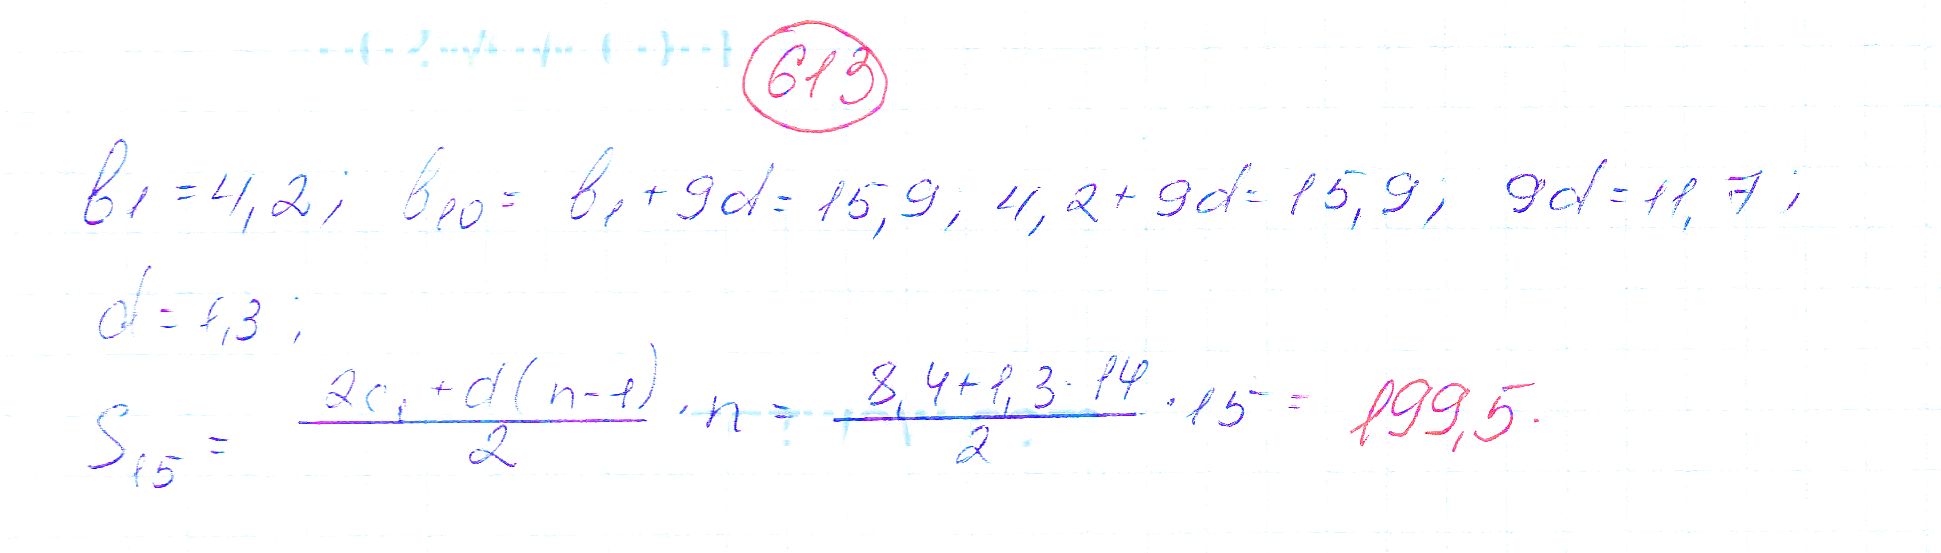 613
b₁ = 4,2; b₁₀ = b₁ + 9d = 15,9; 4,2 + 9d = 15,9; 9d = 11,7;
d = 1,3;
S₁₅ = (2c₁ + d(n-1))/2 · n = (8,4 + 1,3 · 14)/2 · 15 = 199,5.